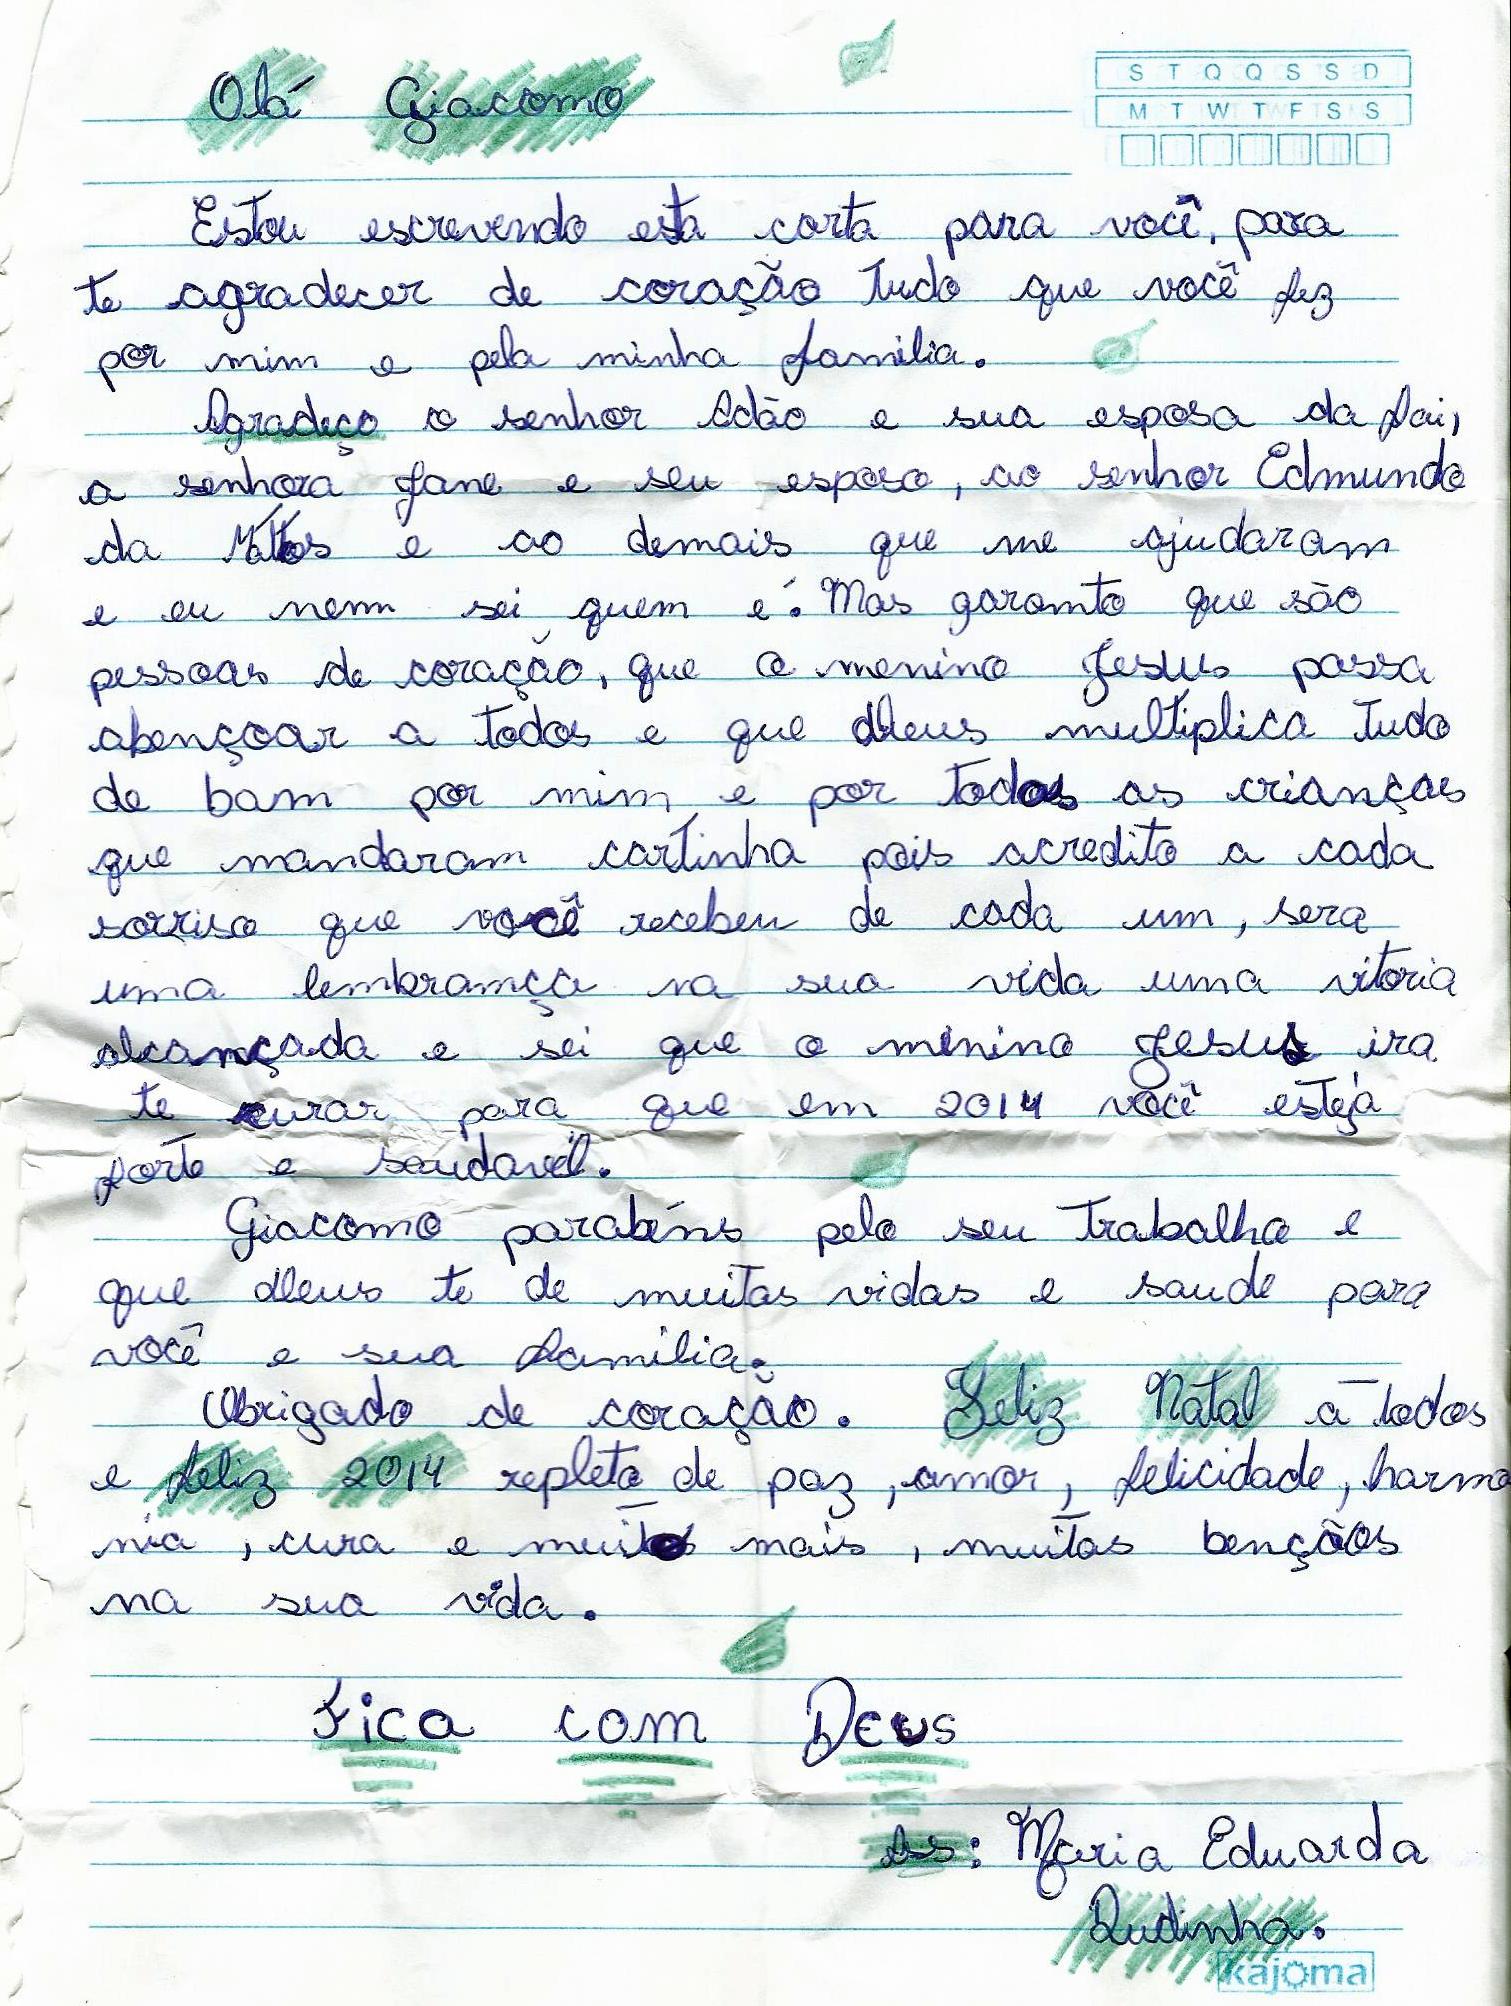 Olá Giacomo
S T Q Q S S D
M T W T F S S
Estou escrevendo esta carta para você, para
te agradecer de coração tudo que você fez
por mim e pela minha familia.
Agradeço o senhor Adão e sua esposa da Lai,
a senhora Jane e seu esposo, ao senhor Edmundo
da Mattos e ao demais que me ajudaram
e eu nem sei quem é. Mas garanto que são
pessoas de coração, que o menino Jesus possa
abençoar a todos e que Deus multiplica tudo
de bam por mim e por todas as crianças
que mandaram cartinha pois acredito a cada
sorriso que você recebeu de cada um, sera
uma lembrança na sua vida uma vitoria
alcançada e sei que o menino Jesus ira
te curar para que em 2014 você estejá
forte e saudavél.
Giacomo parabéns pelo seu trabalho e
que Deus te de muitas vidas e saude para
você e sua familia.
Obrigado de coração. Feliz Natal a todos
e feliz 2014 repleto de paz, amor, felicidade, harmo
nia, cura e muitos mais, muitas bençãos
na sua vida.
Fica com Deus
Ass: Maria Eduarda
Dudinha.
kajoma